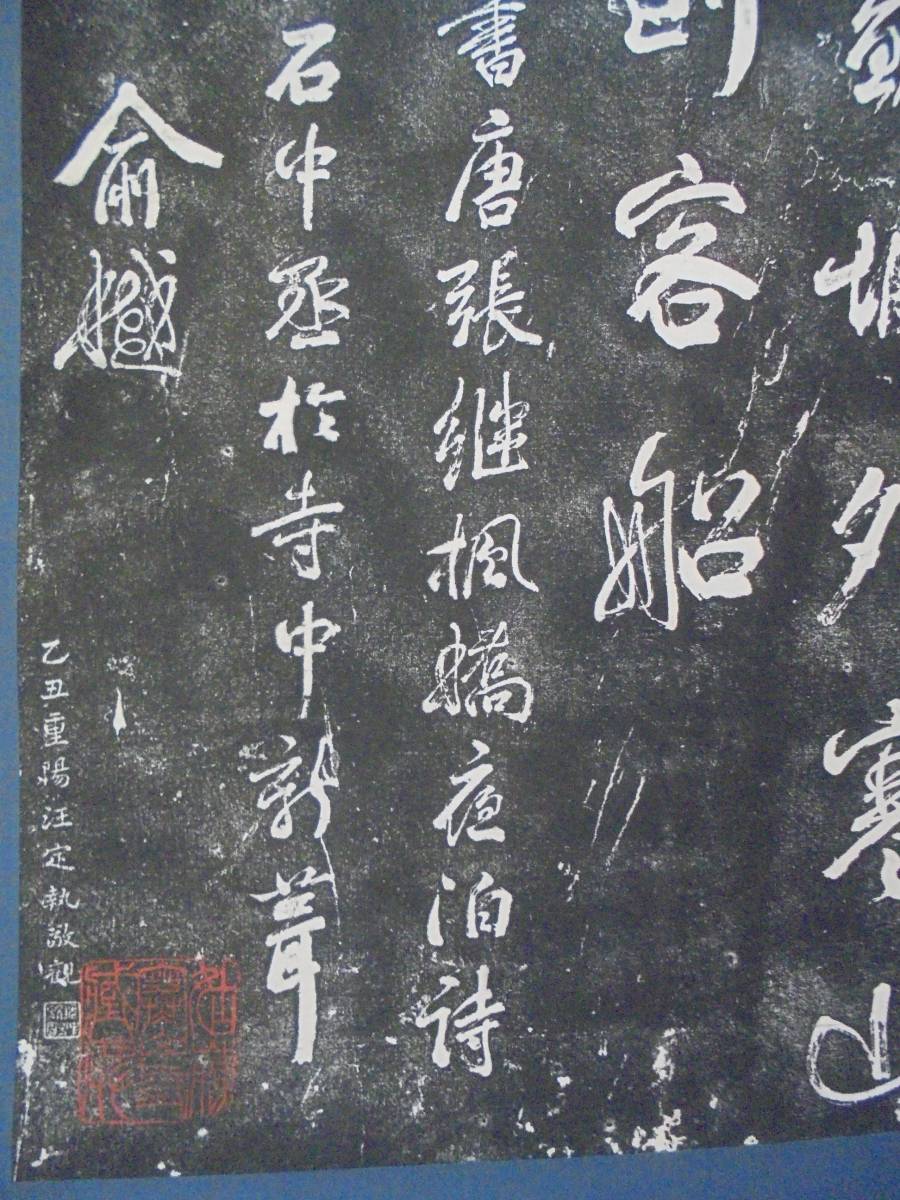 姑蘇城外寒山
到客船
書唐張継楓橋夜泊詩
石中丞於寺中新葺
俞樾
乙丑重陽汪定執敬觀